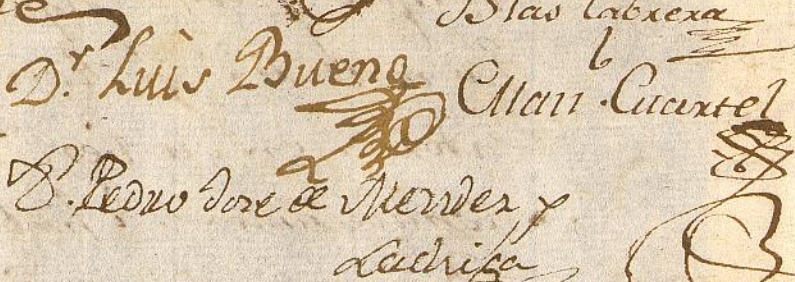 Blas Cabrera
Dr. Luis Bueno
Man.l Cuartel
D. Pedro Jose de Mendez y
Lachica